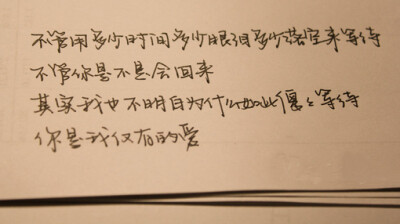 不管用多少时间多少眼泪多少落空来等待
不管你是不是会回来
其实我也不明白为什么如此傻傻等待
你是我仅有的爱